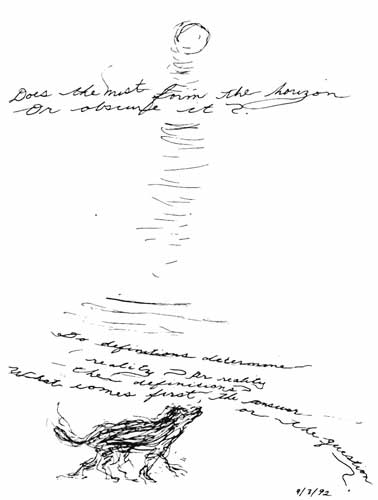 Does the mist form the horizon
Or obscure it?
Do definitions determine
reality? Or reality
the definitions?
What comes first, the answer
or the question?
9/3/92